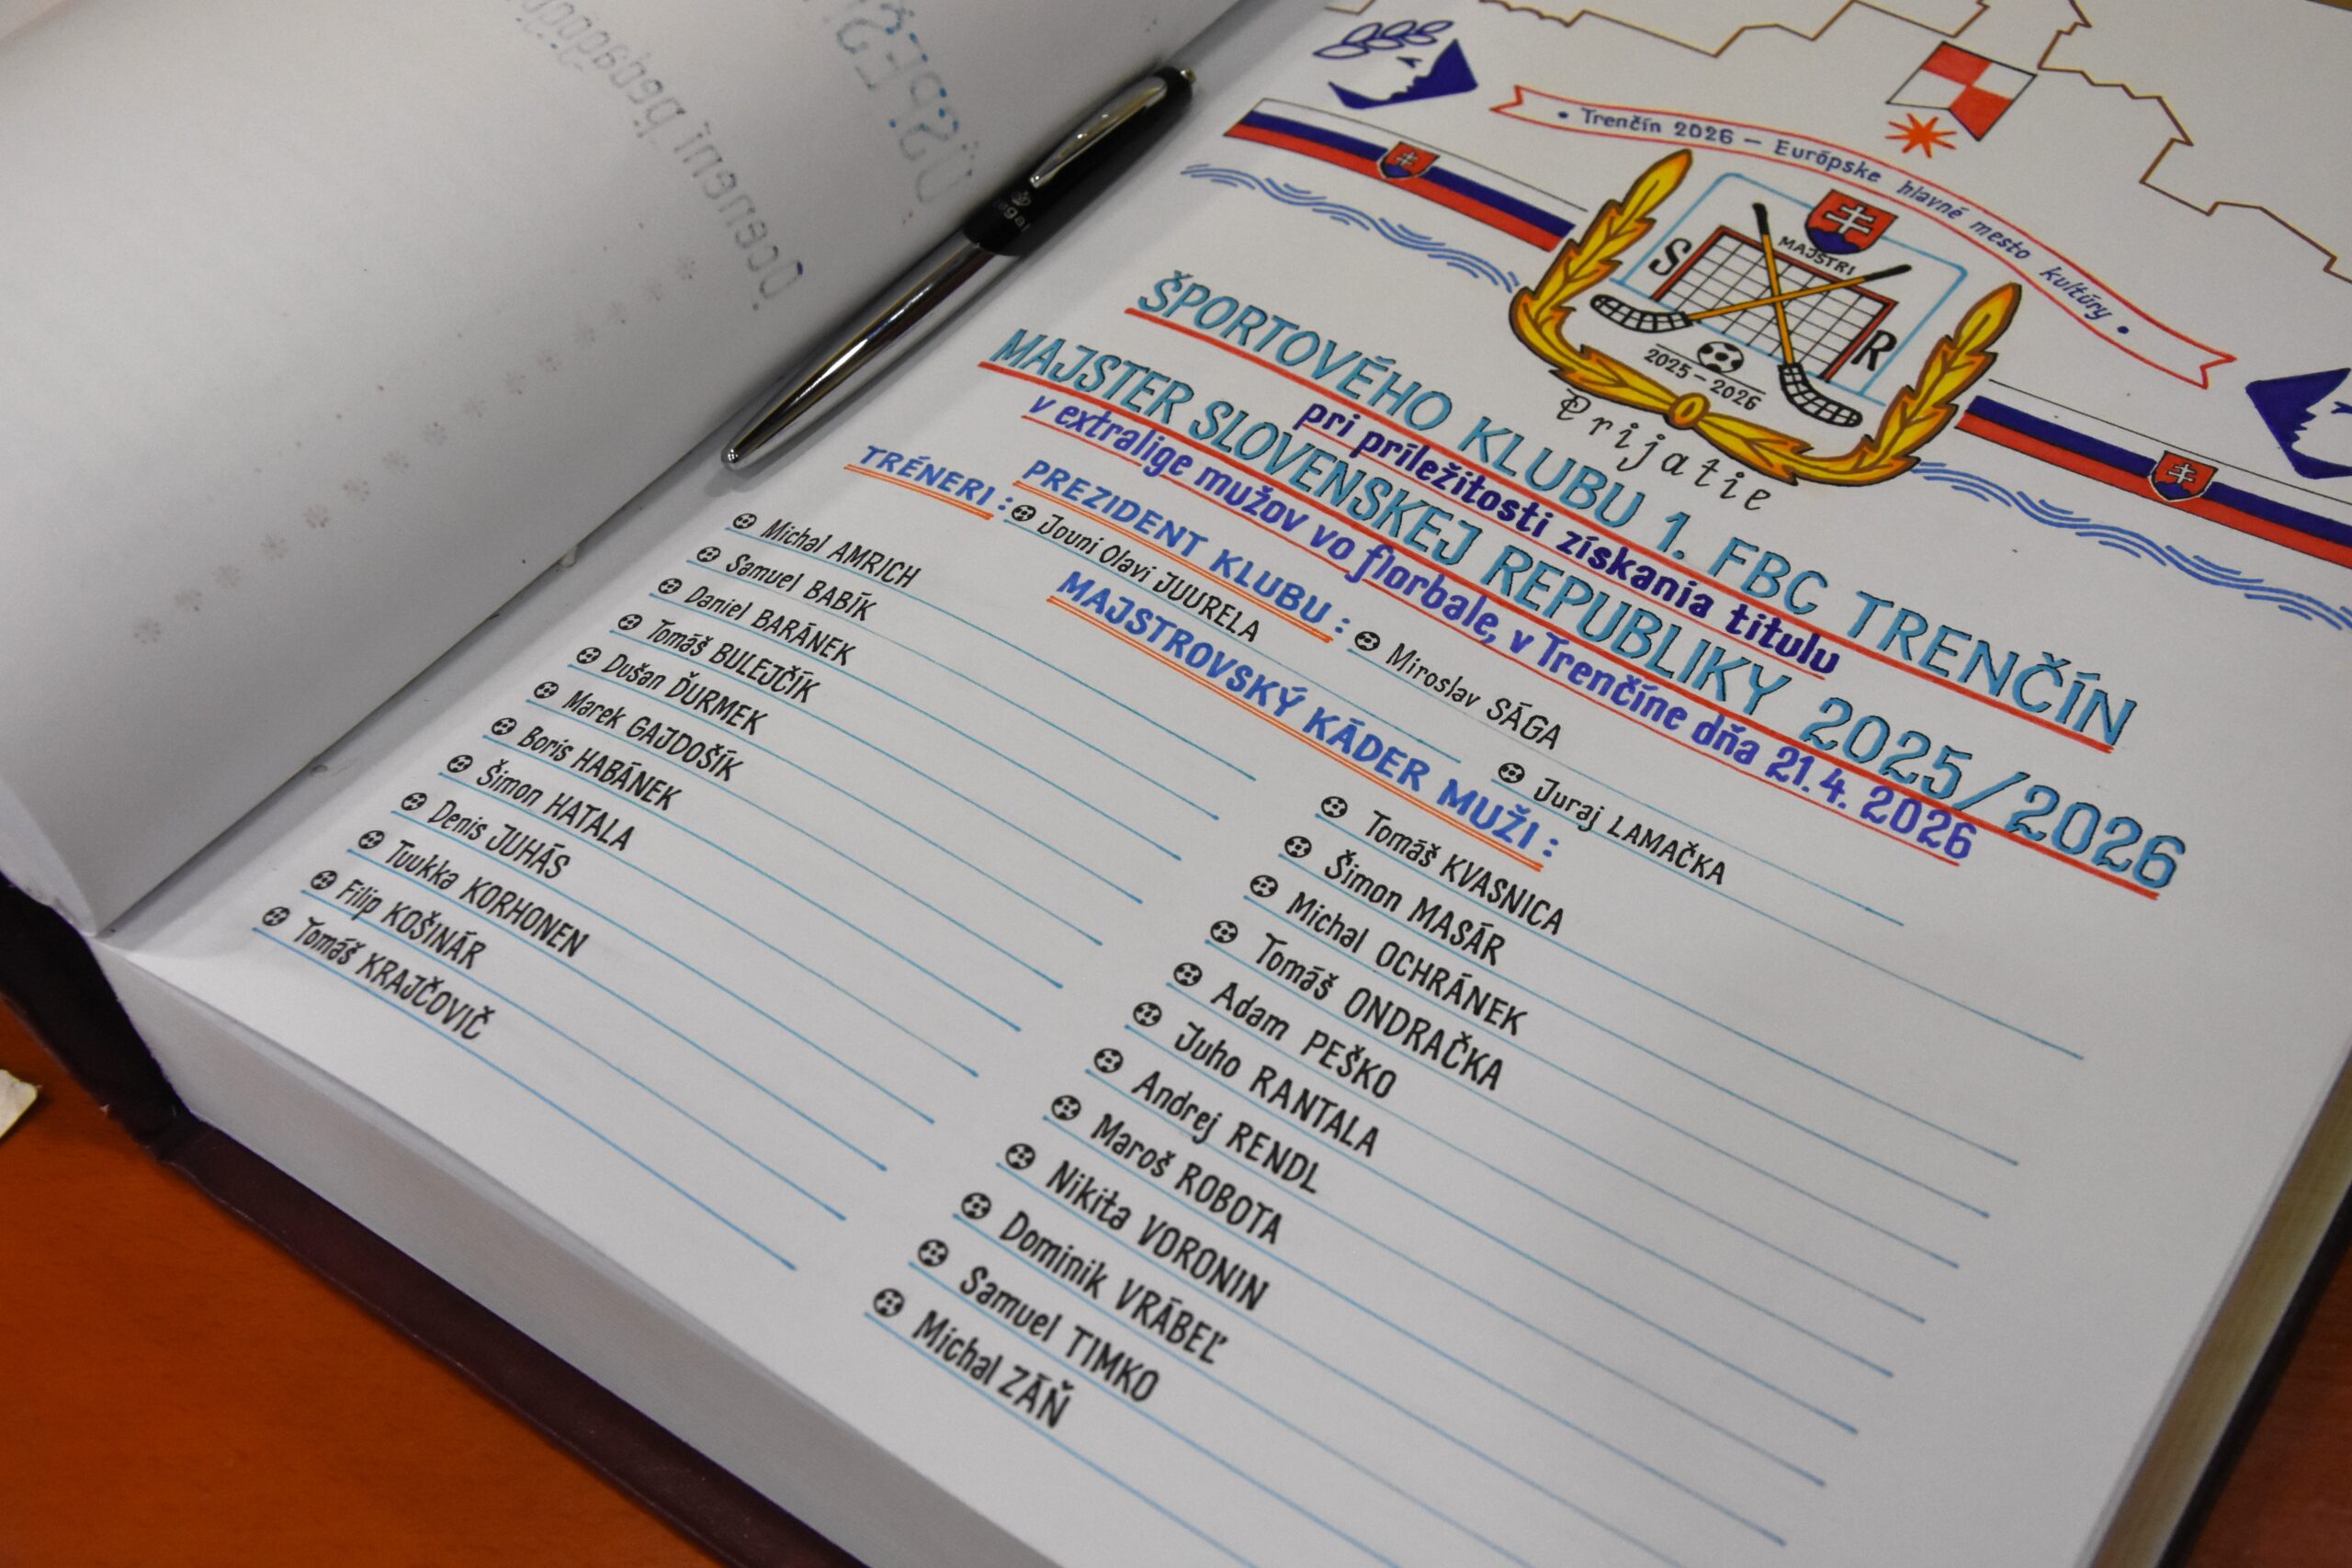 Ocenení pedagógi
ÚSPEŠ
regal
• Trenčín 2026 – Európske hlavné mesto kultúry •
MAJSTRI
S R
2025 – 2026
Prijatie
ŠPORTOVÉHO KLUBU 1. FBC TRENČÍN
pri príležitosti získania titulu
MAJSTER SLOVENSKEJ REPUBLIKY 2025/2026
v extralige mužov vo florbale, v Trenčíne dňa 21.4. 2026
PREZIDENT KLUBU : Miroslav SÁGA
TRÉNERI : Jouni Olavi JUURELA
Juraj LAMAČKA
MAJSTROVSKÝ KÁDER MUŽI :
Michal AMRICH
Samuel BABÍK
Daniel BARÁNEK
Tomáš BULEJČÍK
Dušan ĎURMEK
Marek GAJDOŠÍK
Boris HABÁNEK
Šimon HATALA
Denis JUHÁS
Tuukka KORHONEN
Filip KOŠINÁR
Tomáš KRAJČOVIČ
Tomáš KVASNICA
Šimon MASÁR
Michal OCHRÁNEK
Tomáš ONDRAČKA
Adam PEŠKO
Juho RANTALA
Andrej RENDL
Maroš ROBOTA
Nikita VORONIN
Dominik VRÁBEĽ
Samuel TIMKO
Michal ZÁŇ